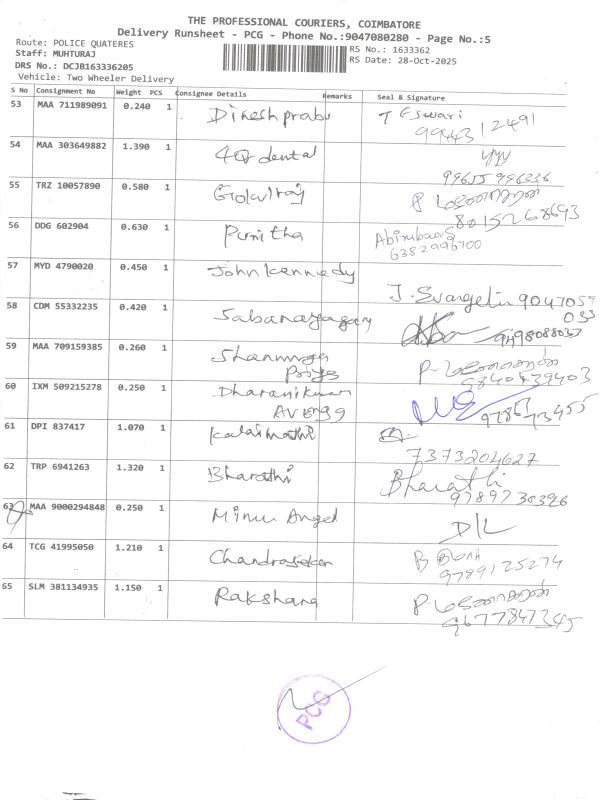 THE PROFESSIONAL COURIERS, COIMBATORE
Delivery Runsheet - PCG - Phone No.:9047080280 - Page No.:5
Route: POLICE QUATERES
RS No.: 1633362
Staff: MUHTURAJ
RS Date: 28-Oct-2025
DRS No.: DCJB163336205
Vehicle: Two Wheeler Delivery
S No Consignment No Weight PCS Consignee Details Remarks Seal & Signature
53 MAA 711989091 0.240 1 Dinesh prabu T Eswari
9944312491
54 MAA 303649882 1.390 1 4Q dental
99655 996336
55 TRZ 10057890 0.580 1 Gokulraj P
8015268693
56 DDG 602904 0.630 1 Punitha
6382996700
57 MYD 4790020 0.450 1 John kennedy
J. Evangelin 9047059
033
58 CDM 55332235 0.420 1 Sabanayagam
9498088037
59 MAA 709159385 0.260 1 Shanmuga
Priya
60 IXM 509215278 0.250 1 Dharanikumar
AV Engg
61 DPI 837417 1.070 1 Kalaimathi
7373204627
62 TRP 6941263 1.320 1 Bharathi Bharathi
9789730396
63 MAA 9000294848 0.250 1 Minu Angel D/L
64 TCG 41995050 1.210 1 Chandrasekar B
9789125274
65 SLM 381134935 1.150 1 Rakshana P
9677847345
PCG